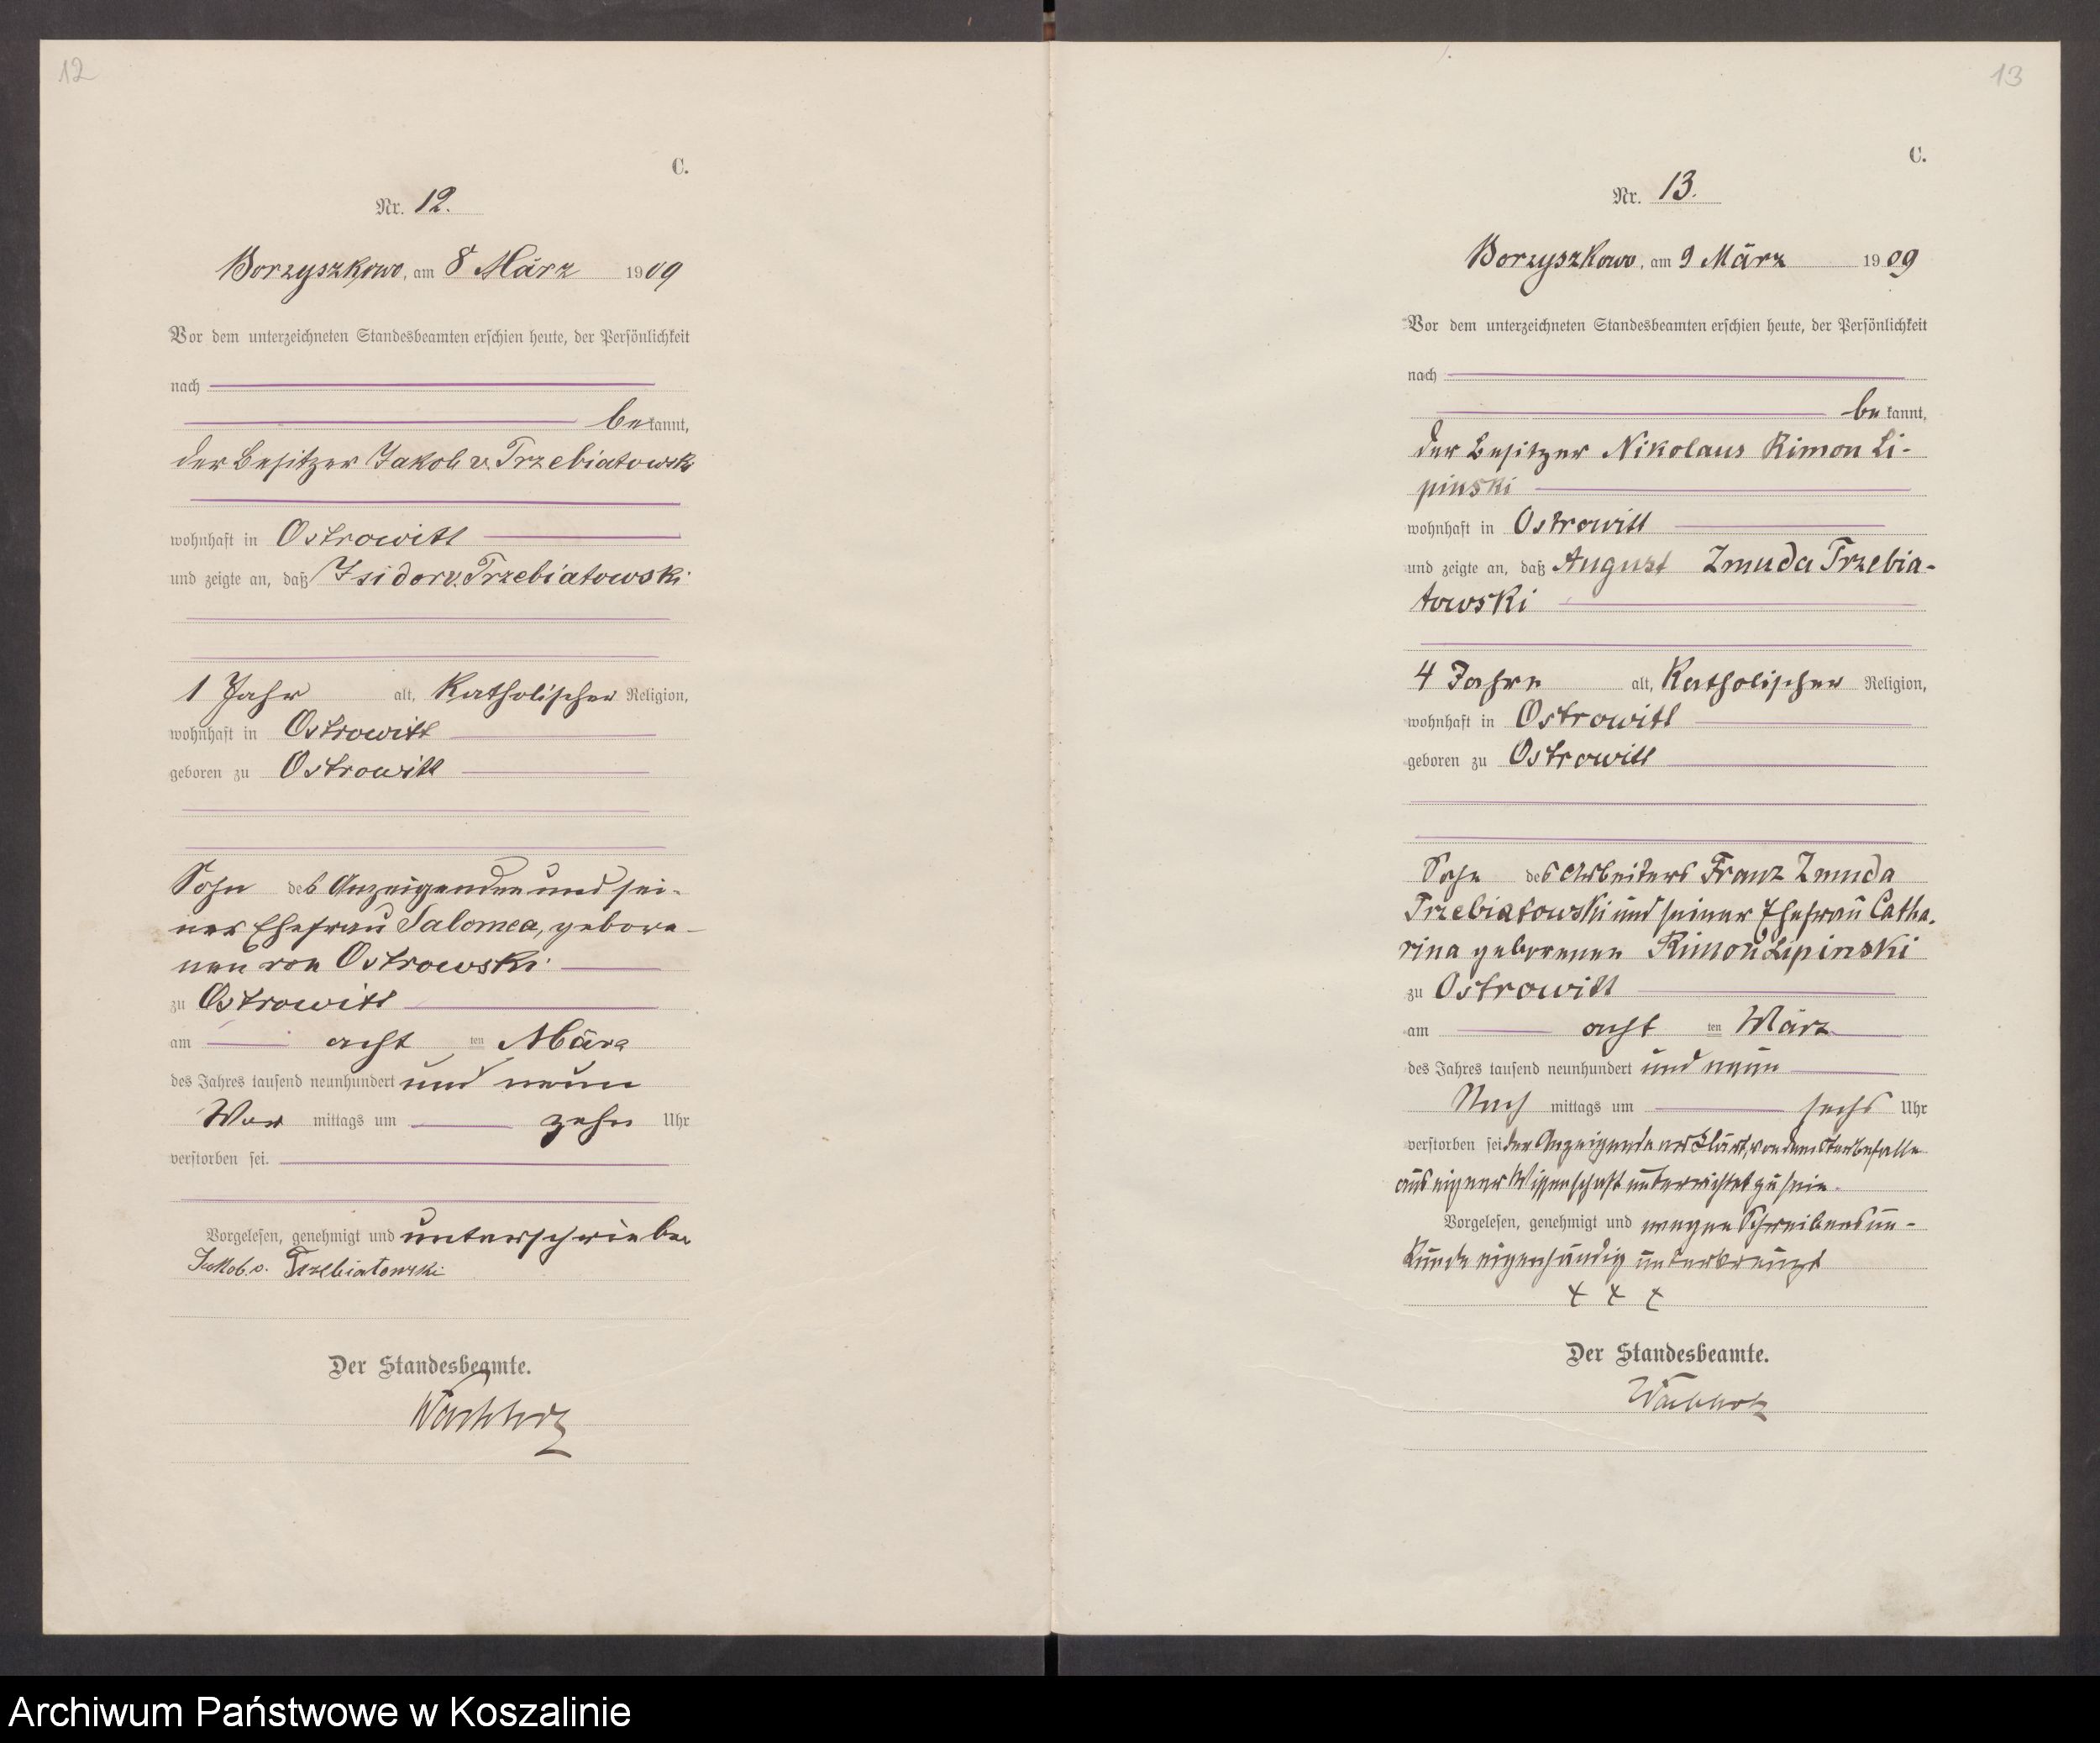 12
C.
Nr. 12.
Borzyszkowo, am 8 März 1909
Vor dem unterzeichneten Standesbeamten erschien heute, der Persönlichkeit
nach
bekannt,
der Besitzer Jakob v. Trzebiatowski
wohnhaft in Ostrowitt
und zeigte an, daß Isidor v. Trzebiatowski
1 Jahr alt, Katholischer Religion,
wohnhaft in Ostrowitt
geboren zu Ostrowitt
Sohn des Anzeigenden und sei-
ner Ehefrau Salomea, gebore-
nen von Ostrowski
zu Ostrowitt
am acht ten März
des Jahres tausend neunhundert und neun
Vor mittags um zehn Uhr
verstorben sei.
Vorgelesen, genehmigt und unterschrieben
Jakob v. Trzebiatowski
Der Standesbeamte.
Wachholz
13
C.
Nr. 13.
Borzyszkowo, am 9 März 1909
Vor dem unterzeichneten Standesbeamten erschien heute, der Persönlichkeit
nach
bekannt,
der Besitzer Nikolaus Rimon Li-
pinski
wohnhaft in Ostrowitt
und zeigte an, daß August Zmuda Trzebia-
towski
4 Jahre alt, Katholischer Religion,
wohnhaft in Ostrowitt
geboren zu Ostrowitt
Sohn des Arbeiters Franz Zmuda
Trzebiatowski und seiner Ehefrau Catha-
rina geborenen Rimon Lipinski
zu Ostrowitt
am acht ten März
des Jahres tausend neunhundert und neun
Nach mittags um sechs Uhr
verstorben sei der Anzeigende erklärt, von dem Sterbefalle
aus eigener Wissenschaft unterrichtet zu sein.
Vorgelesen, genehmigt und wegen Schreibensun-
kunde eigenhändig unterkreuzt
+ + +
Der Standesbeamte.
Wachholz
Archiwum Państwowe w Koszalinie